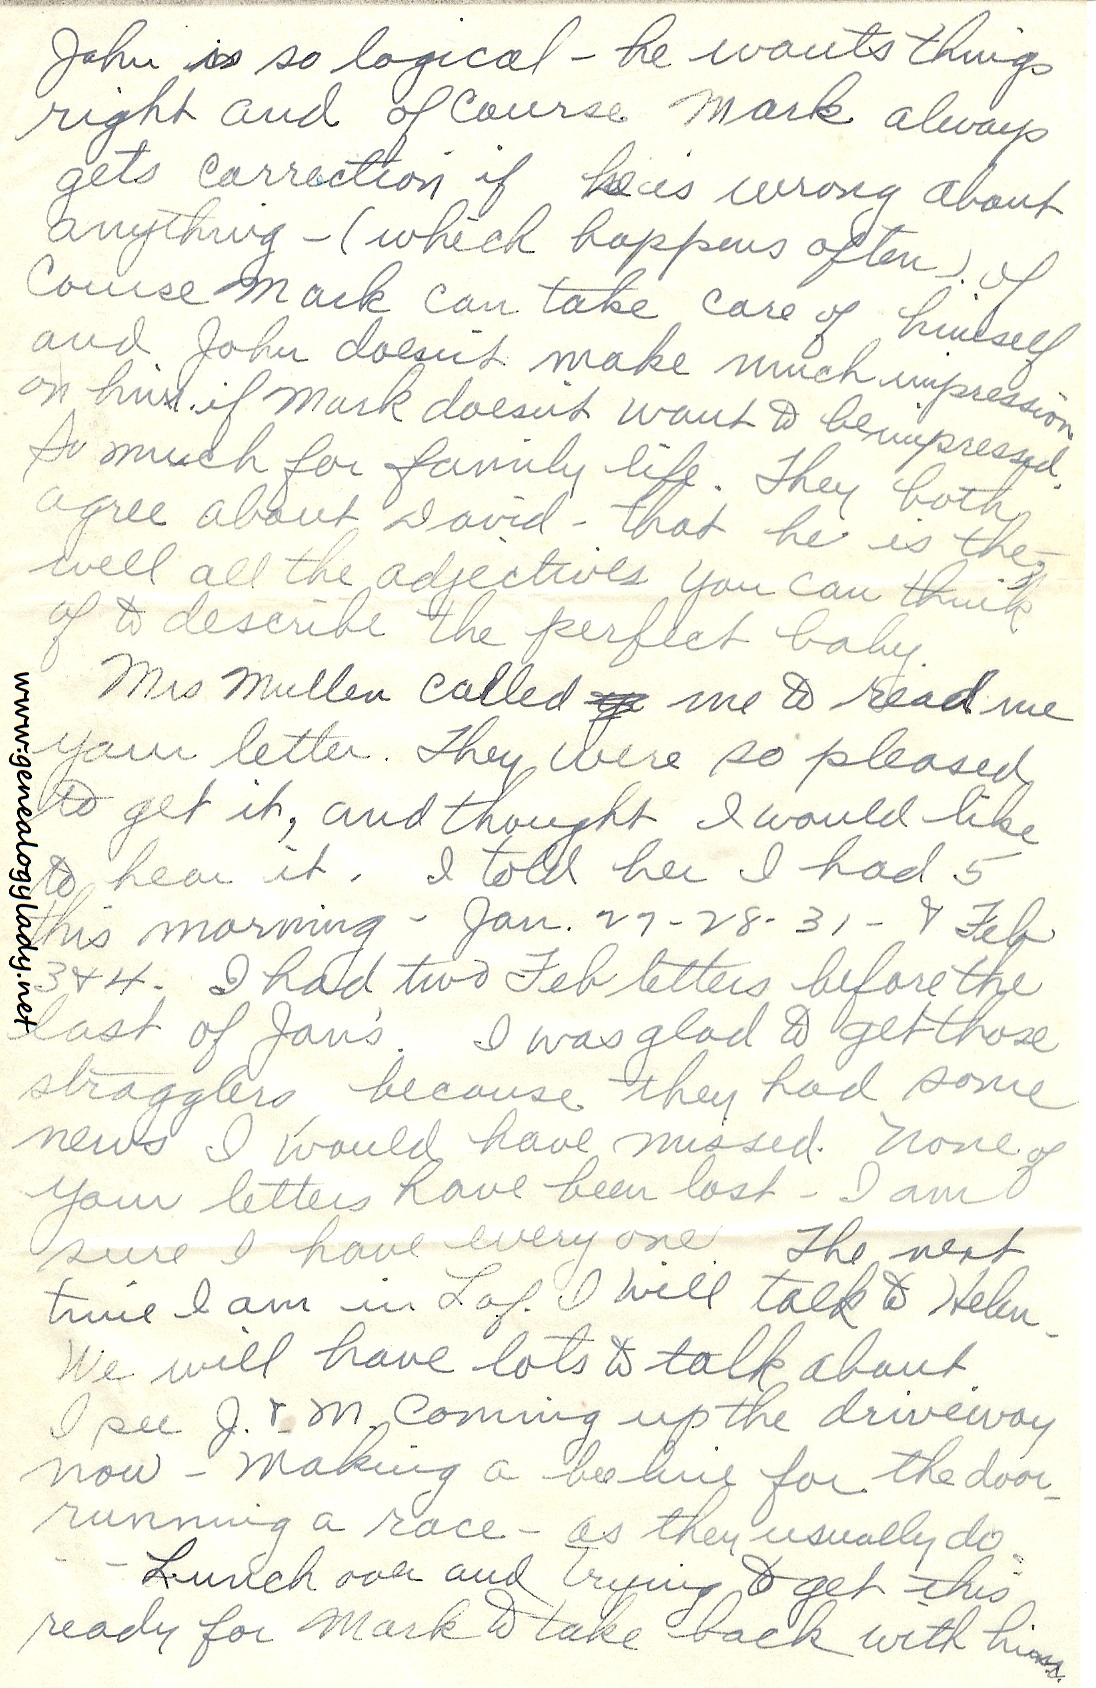 John is so logical - he wants things
right and of course Mark always
gets correction if he is wrong about
anything - (which happens often). Of
course Mark can take care of himself
and John doesn't make much impression
on him if Mark doesn't want to be impressed.
So much for family life. They both
agree about David - that he is the -
well all the adjectives you can think
of to describe the perfect baby.
Mrs Mullen called me to read me
your letter. They were so pleased
to get it, and thought I would like
to hear it. I told her I had 5
this morning - Jan. 27-28-31- & Feb
3 & 4. I had two Feb letters before the
last of Jan's. I was glad to get those
stragglers because they had some
news I would have missed. None of
your letters have been lost - I am
sure I have every one. The next
time I am in Laf. I will talk to Helen -
We will have lots to talk about.
I see J. & M. coming up the driveway
now - making a bee line for the door -
running a race - as they usually do.
- - Lunch over and trying to get this
ready for Mark to take back with him.
www.genealogylady.net